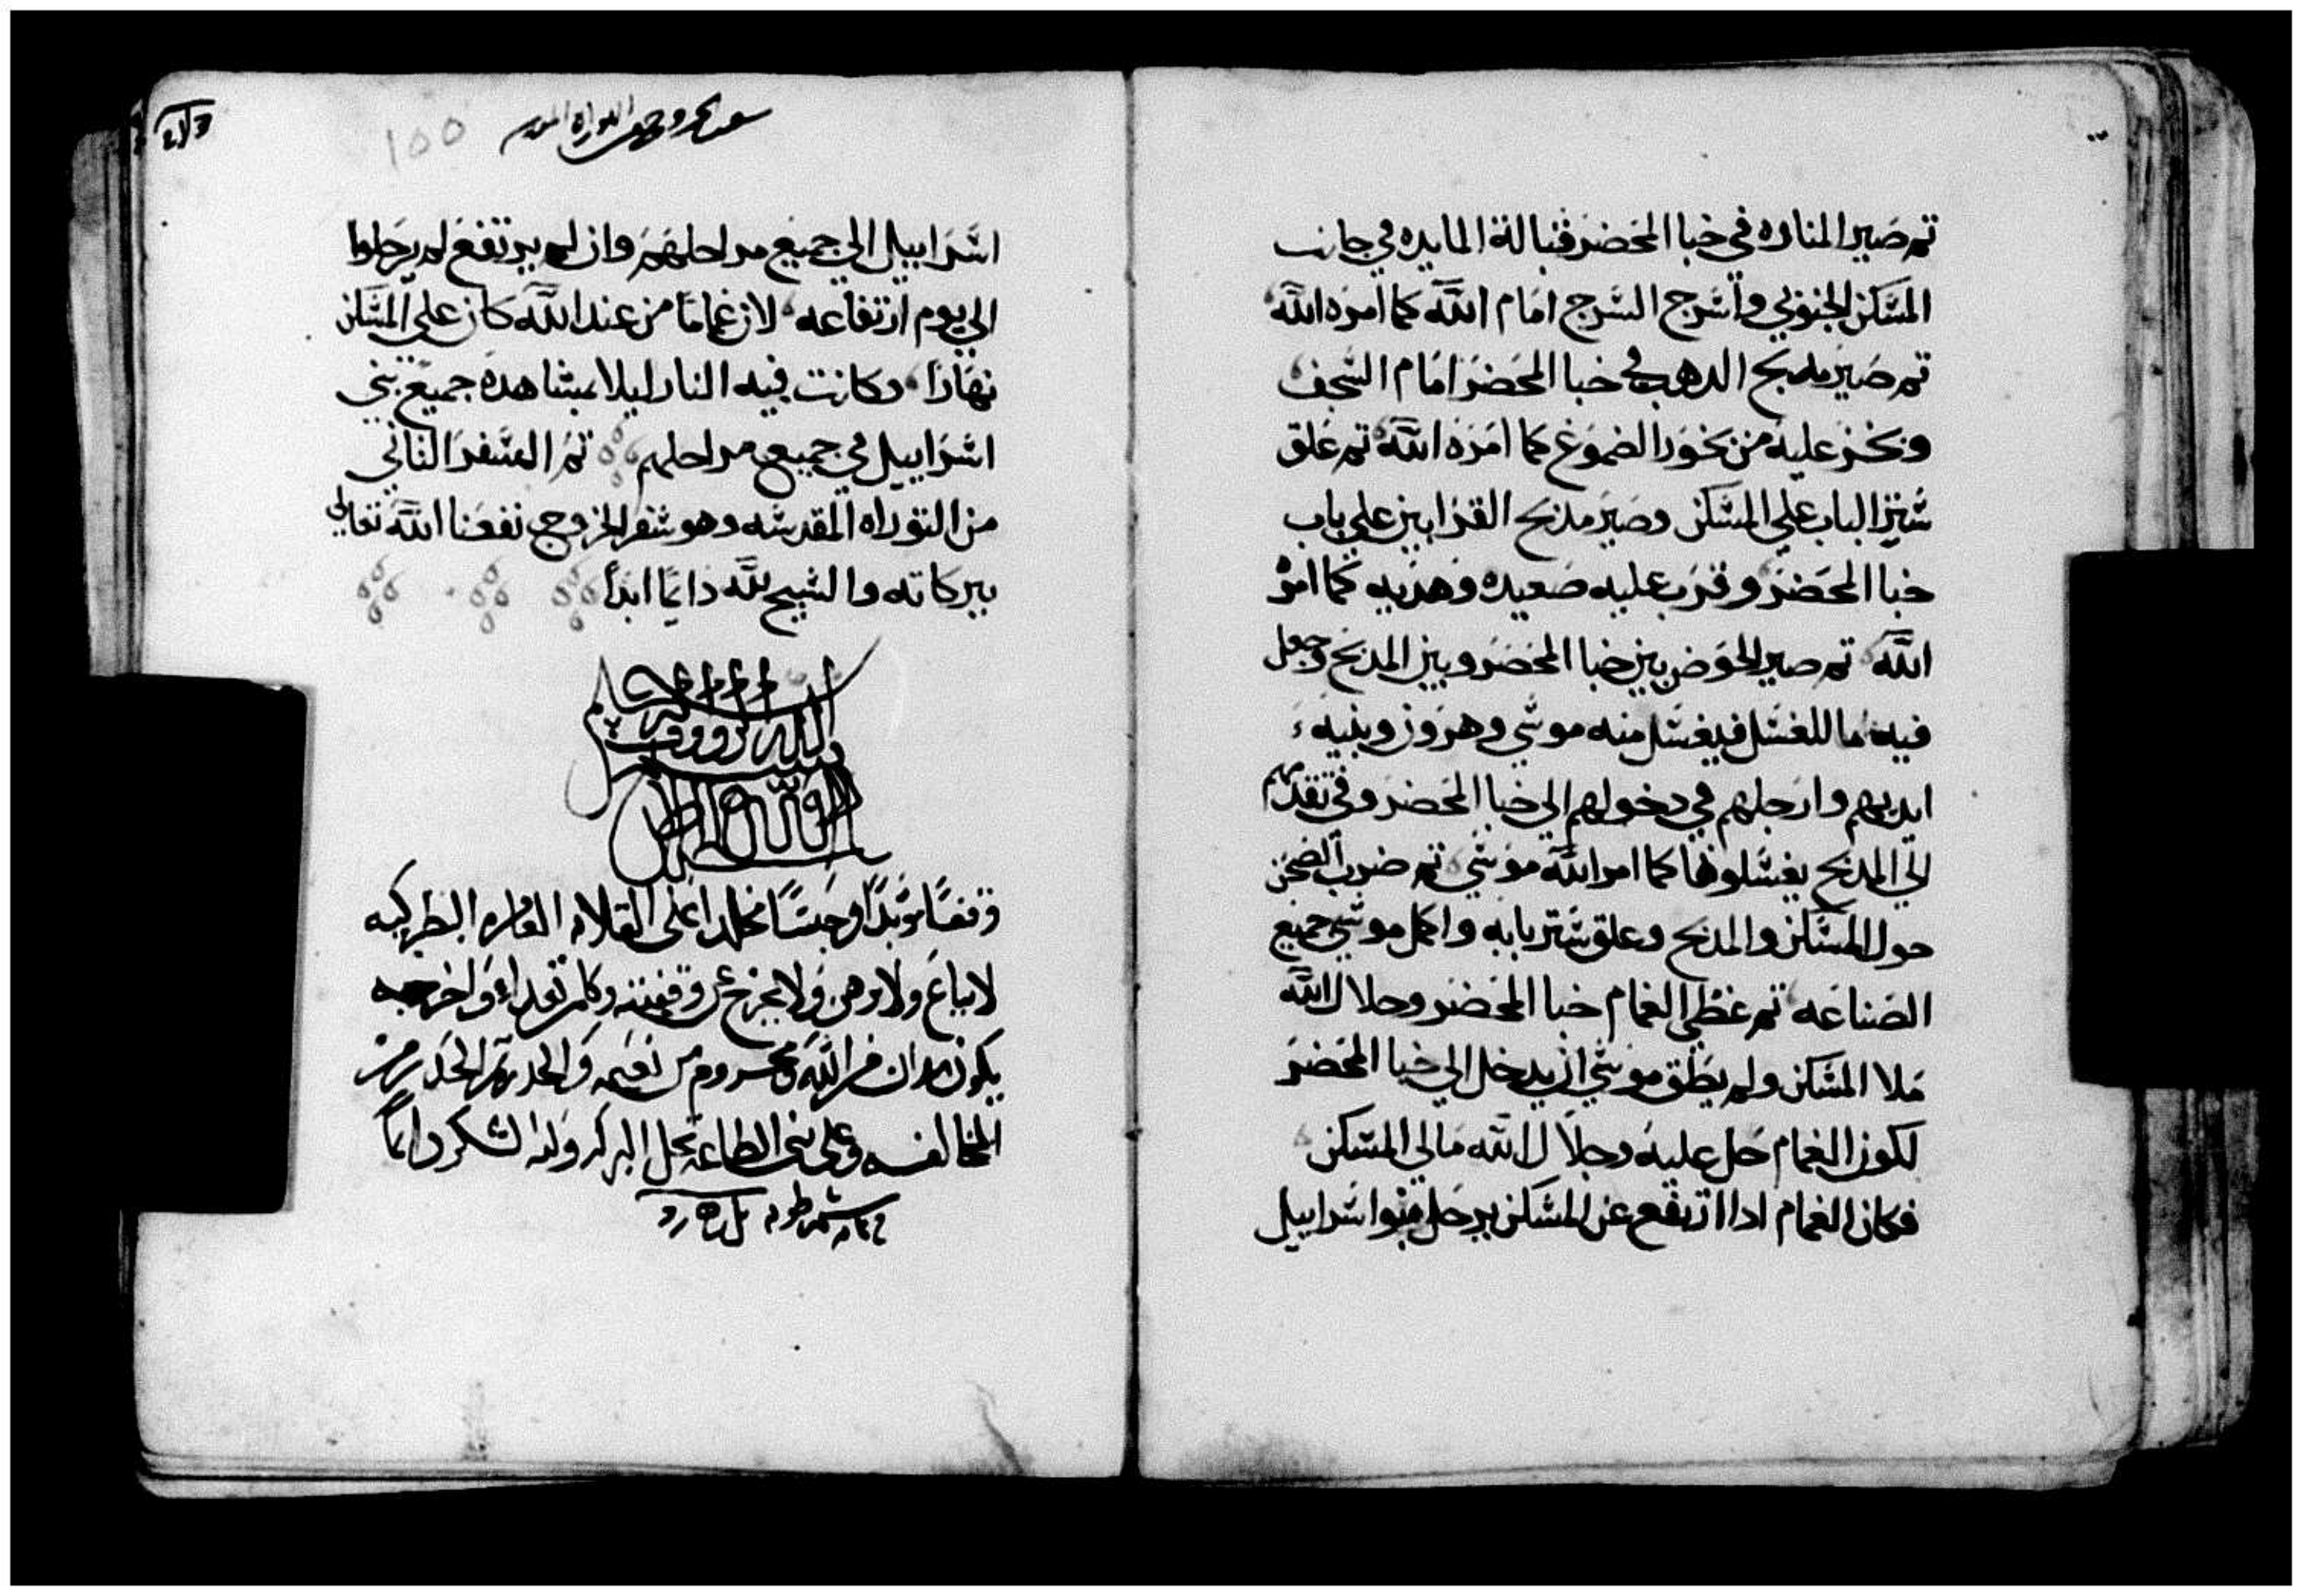 تم صير المناره في خبا المحضر قبالة المايده في جانب
المسكن الجنوبي واسرج السرج امام الله كما امره الله
تم صير مدبح الدهب في خبا المحضر امام السجف
وبخر عليه من بخور الصموغ كما امره الله تم علق
ستر الباب علي المسكن وصير مدبح القرابين علي باب
خبا المحضر وقرب عليه صعيده وهديه كما امره
الله تم صير الحوض بين خبا المحضر وبين المدبح وجعل
فيه ما للغسل فيغسل منه موسي وهرون وبنيه
ايديهم وارجلهم في دخولهم الي خبا المحضر وفي تقدمهم
الي المدبح يغسلوها كما امر الله موسي تم ضرب الصحن
حول المسكن والمدبح وعلق ستر بابه واكمل موسي جميع
الصناعه تم غطي الغمام خبا المحضر وجلال الله
ملا المسكن ولم يطق موسي ان يدخل الي خبا المحضر
لكون الغمام حل عليه وجلال الله مالي المسكن
فكان الغمام ادا ارتفع عن المسكن يرحل بنوا اسراييل
١٥٥
اسراييل الي جميع مراحلهم وان لم يرتفع لم يرحلوا
الي يوم ارتفاعه لان غماما من عند الله كان علي المسكن
نهارا وكانت فيه النار ليلا بمشاهدة جميع بني
اسراييل في جميع مراحلهم تم السفر التاني
من التوراه المقدسه وهو سفر الخروج نفعنا الله تعالي
ببركاته والسبح لله دايما ابدا
وقفا موبدا وحبسا مخلدا علي القلايه العامره البطريركيه
لا يباع ولا يرهن ولا يخرج عن وقفيته وكلمن تعدا واخرجه
يكون مدان من الله ومحروم من نعمه والحدر تم الحدر من
المخالفه وعلي بني الطاعه تحل البركه ولله الشكر دايما